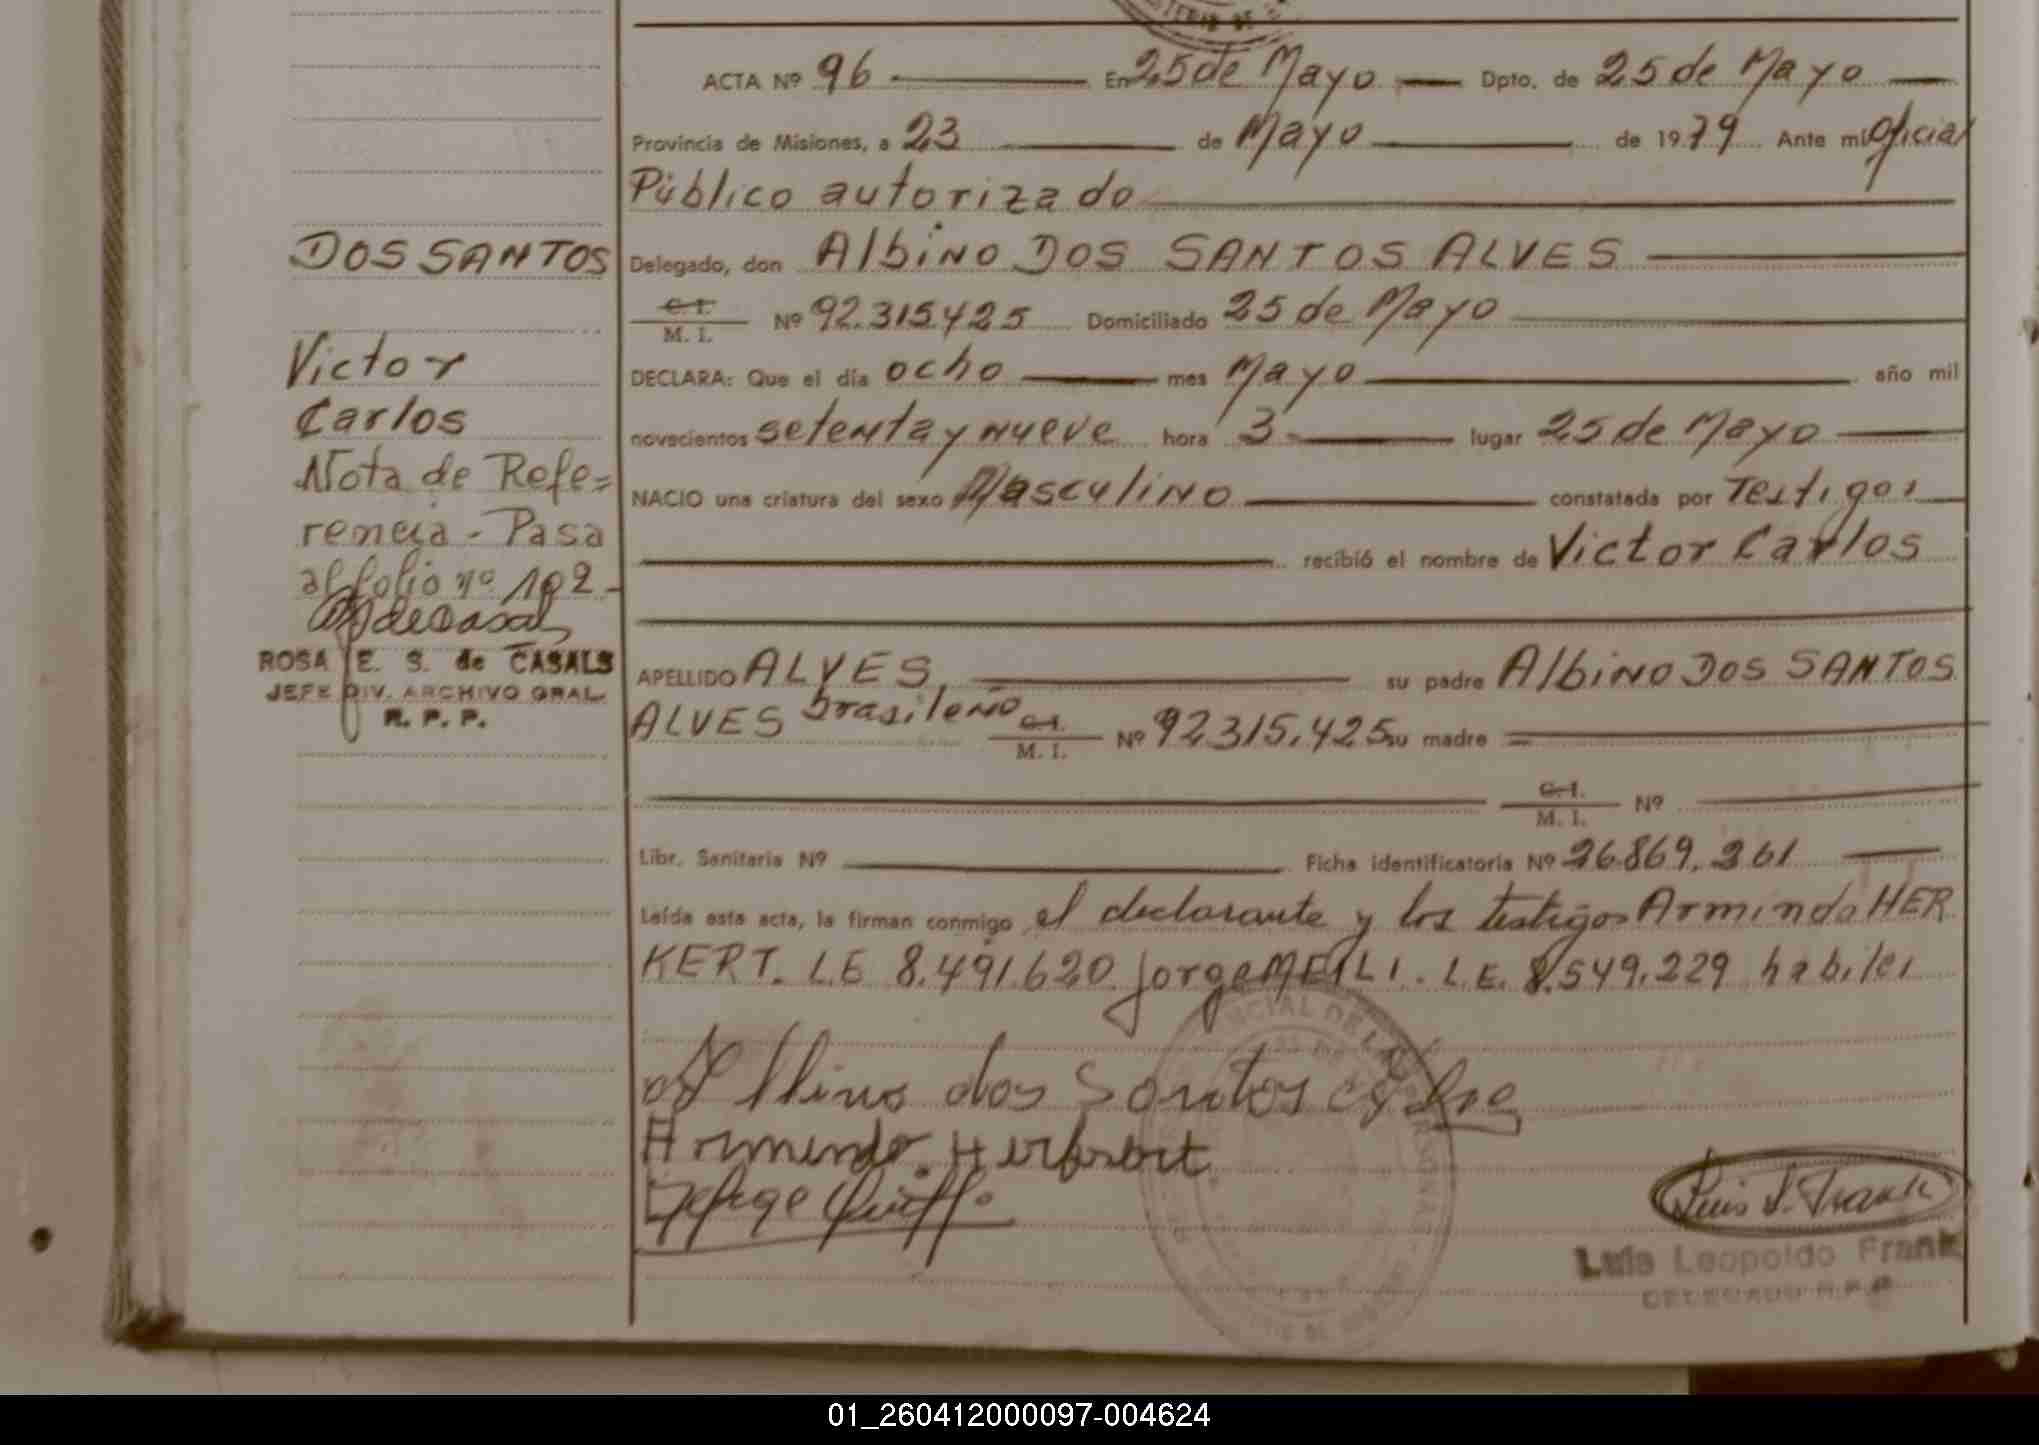 ACTA Nº 96 En 25 de Mayo Dpto. de 25 de Mayo
Provincia de Misiones, a 23 de Mayo de 1979 Ante mí Oficial
Público autorizado
DOS SANTOS
Delegado, don Albino DOS SANTOS ALVES
C.I. M. I. Nº 92.315.425 Domiciliado 25 de Mayo
Victor
DECLARA: Que el día ocho mes Mayo año mil
Carlos
novecientos setenta y nueve hora 3 lugar 25 de Mayo
Nota de Refe=
NACIO una criatura del sexo Masculino constatada por Testigos
rencia - Pasa
recibió el nombre de Victor Carlos
al folio nº 102-
ROSA E. S. de CASALS
JEFE DIV. ARCHIVO GRAL.
R. P. P.
APELLIDO ALVES su padre Albino DOS SANTOS
ALVES brasileño C.I. M. I. Nº 92.315.425 su madre
C.I. M. I. Nº
Libr. Sanitaria Nº Ficha identificatoria Nº 26.869.261
Leída esta acta, la firman conmigo el declarante y los testigos Armindo HER
KERT. L.E 8.491.620 Jorge MEILI. L.E. 8.549.229 habiles
Albino dos Santos
Armindo Herkert
Luis L. Frank
Luis Leopoldo Frank
DELEGADO R.P.P
01_260412000097-004624